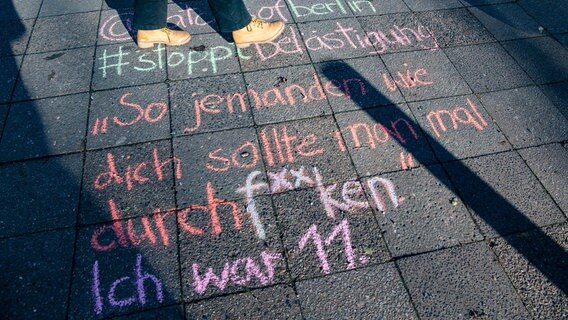 of berlin
#stopptBelästigung
„So jemanden wie
dich sollte man mal
durchfxxxken."
Ich war 11.